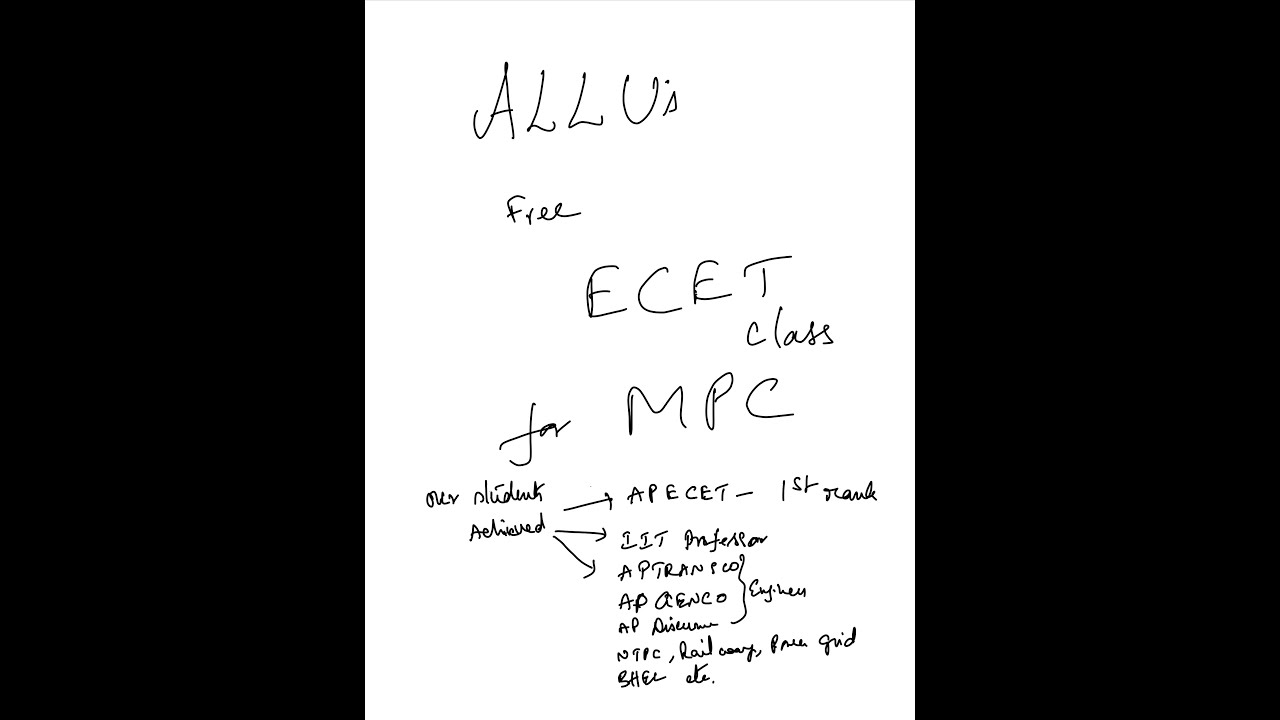 ALLU's
Free
ECET
class
for MPC
our students
Achieved
APECET - 1st rank
IIT Professor
APTRANSCO
AP GENCO
Engineers
AP
NTPC, Railway, Power grid
BHEL etc.